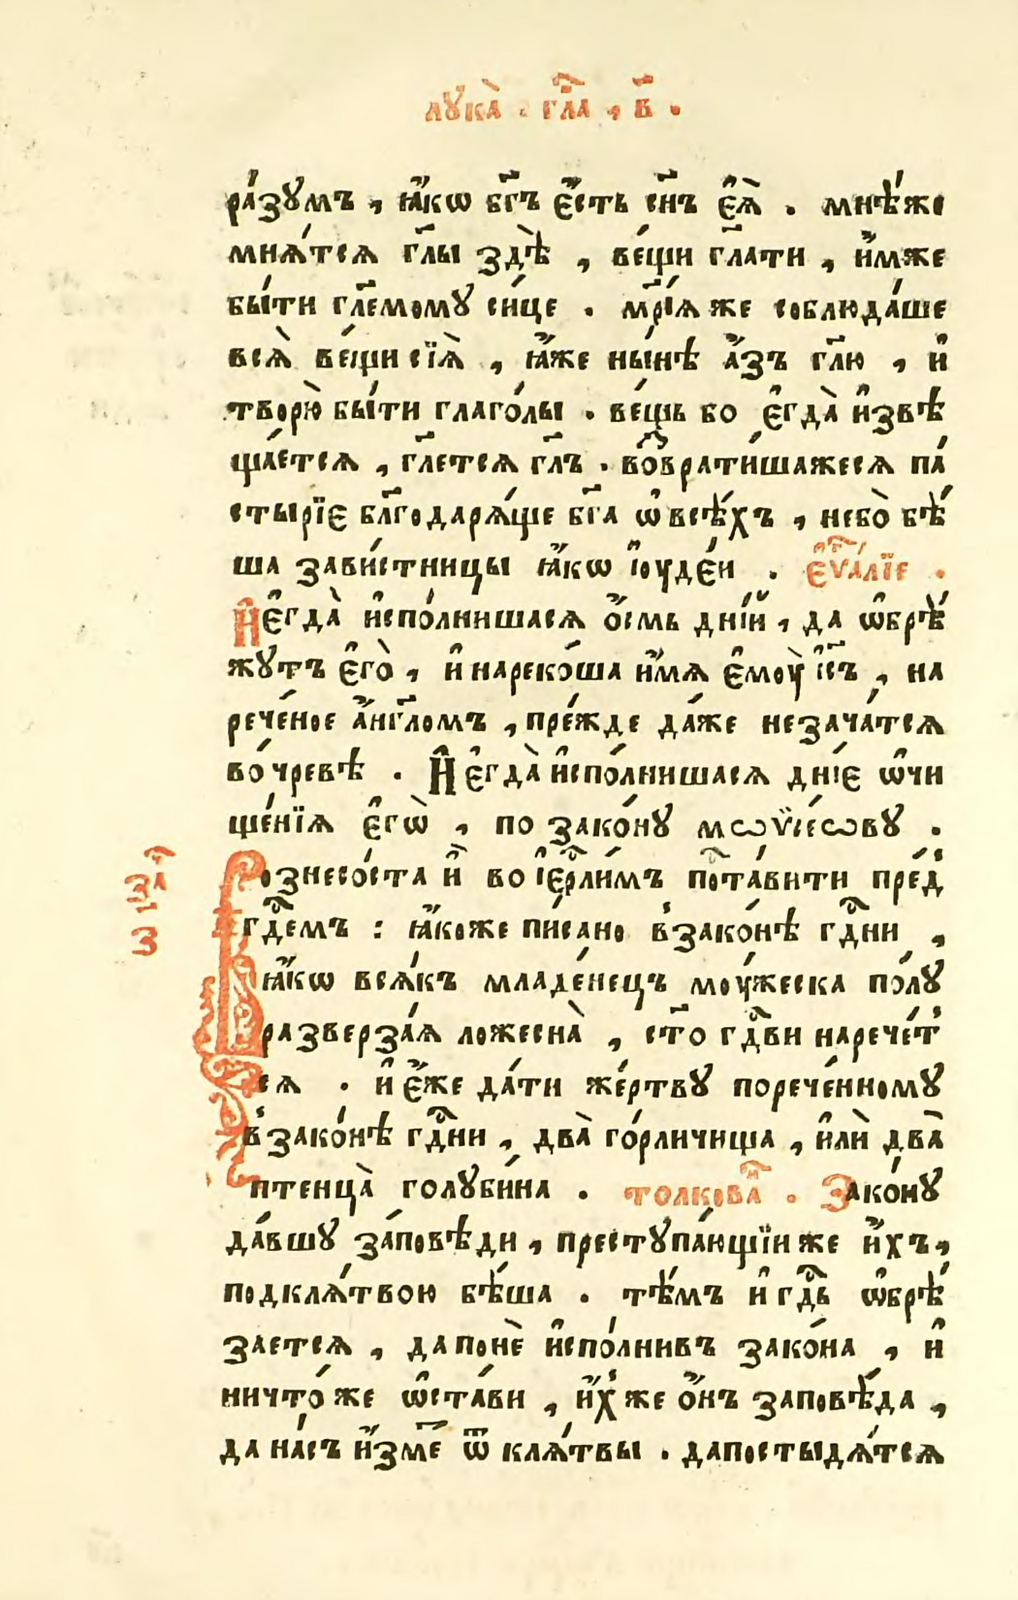 лꙋка̀ . гл҃а , в҃ .
ра́зꙋмъ , ꙗ҆́кѡ бг҃ъ є҆́сть сн҃ъ є҆ѧ̀ . мнѣ́же
мнѧ́тсѧ гл҃ы здѣ̀ , ве́щи гл҃ати , и҆́мже
бы́ти гл҃емомꙋ си́це . мр҃і́ѧ же соблюда́ше
всѧ̀ ве́щи сїѧ̀ , ꙗ҆́же ны́нѣ а҆́зъ гл҃ю , и҆
творю̀ бы́ти глаго́лы . ве́щь бо є҆гда̀ и҆звѣ
ща́етсѧ , гл҃етсѧ гл҃ъ . во́ⷥврати́шажесѧ па́
стырїє бл҃годарѧ́ще бг҃а ѡ҆ всѣ́хъ , небо̀ бѣ́
ша зави́стницы ꙗ҆́кѡ і҆ꙋде́и . є҆ѵⷢ҇а́лїе .
И҆є҆гда̀ и҆спо́лнишасѧ ѻ҆́смь дні́й , да ѡ҆брѣ́
жꙋтъ є҆го̀ , и҆ нареко́ша и҆́мѧ є҆моу̀ і҆с҃ъ , на
рече́ное а҆́нгл҃омъ , пре́жде да́же незача́тсѧ
во́ чревѣ . И҆ є҆гда̀ и҆спо́лнишасѧ дні́є ѡ҆чи
ще́нїѧ є҆гѡ̀ , по зако́нꙋ мѡѷсе́ѡвꙋ .
Вознесо́ста и҆̀ во і҆ерⷭ҇ли́мъ поⷭ҇та́вити пре́д̾
гдⷭ҇емъ : ꙗ҆́коже пи́сано в̾зако́нѣ гдⷭ҇ни ,
ꙗ҆́кѡ всѧ́къ младе́нецъ моу́жеска по́лꙋ
разверза́ѧ ложесна̀ , ст҃о гдⷭ҇ви нарече́т̾
сѧ . и҆ є҆́же да́ти же́ртвꙋ порече́нномꙋ
в̾зако́нѣ гдⷭ҇ни , два̀ го́рличища , и҆лѝ два̀
птенца̀ голꙋби́на . толковаⷩ҇ . Зако́нꙋ
да́вшꙋ за́повѣди , престꙋпа́ющїи же и҆́хъ ,
подклѧ́твою бѣ́ша . тѣ́мъ и҆ гдⷭ҇ь ѡ҆брѣ́
заетсѧ , да понѐ и҆спо́лнивъ зако́на , и҆
ничто́ же ѡ҆ста́ви , и҆́х̾ же ѻ҆́нъ заповѣ́да ,
да на́съ и҆́змеⷮ ѿ клѧ́твы . дапостыдѧ́тсѧ
заⷱ҇
з